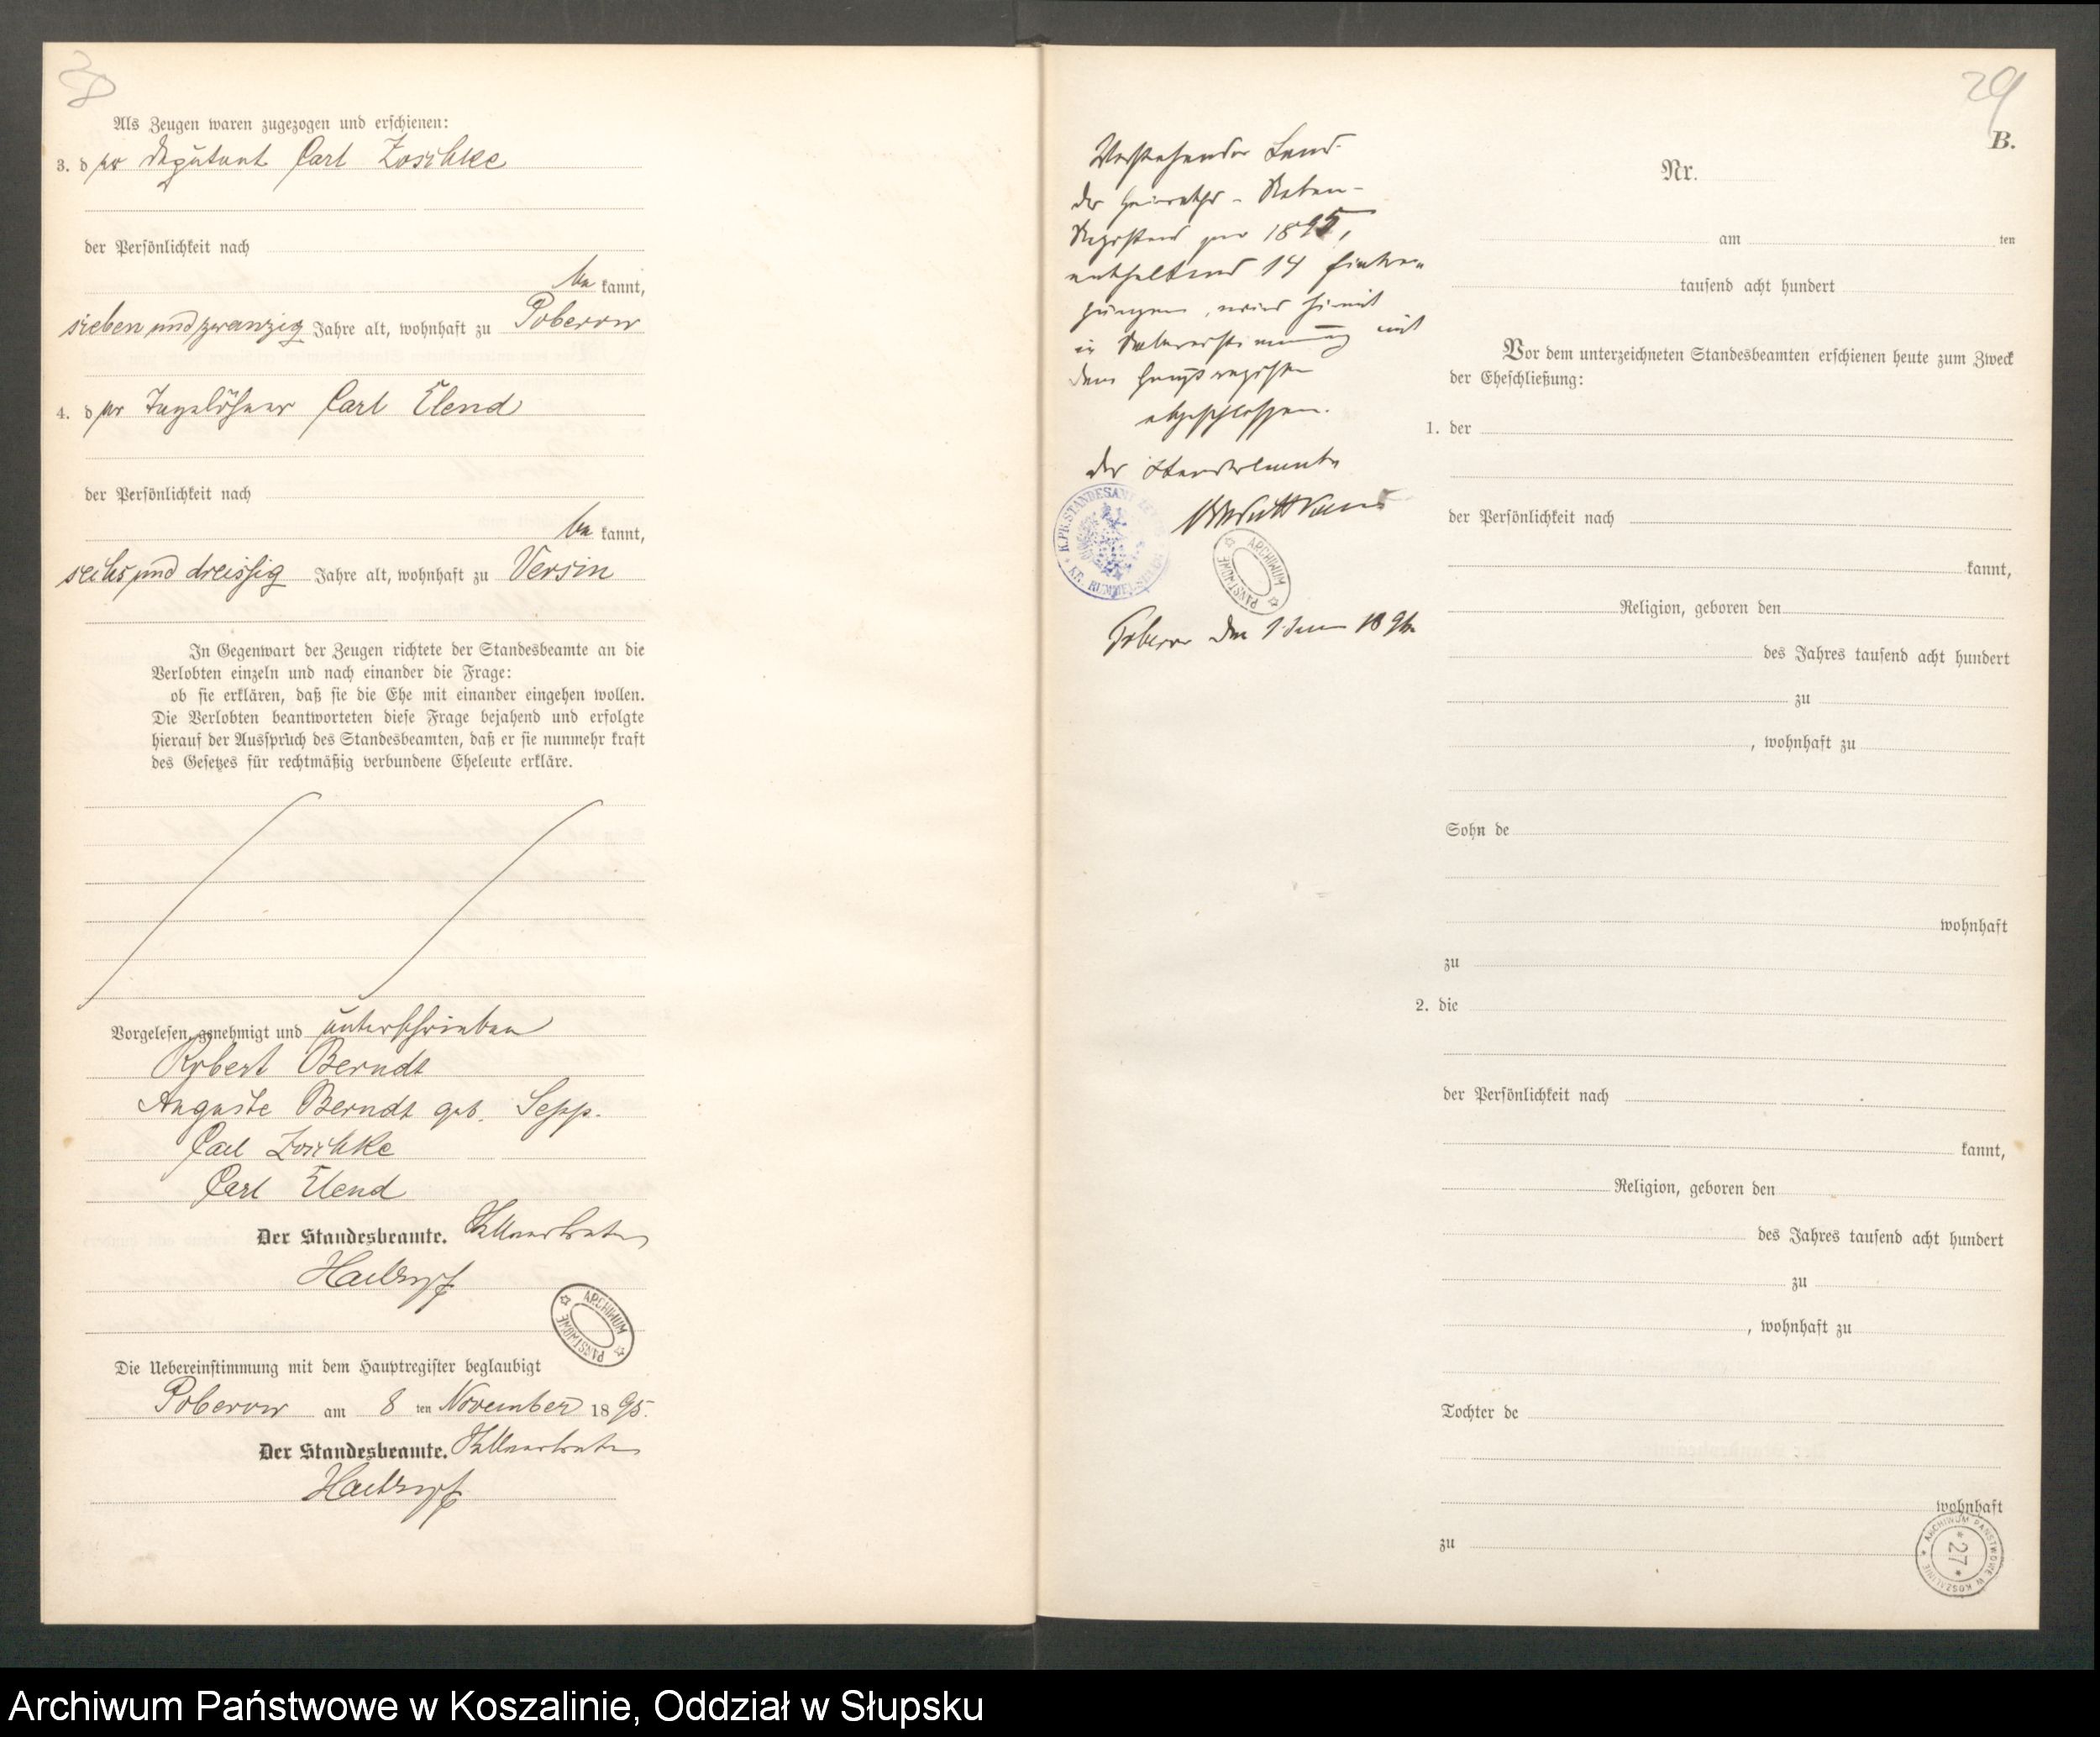 Als Zeugen waren zugezogen und erschienen:
3. der Deputant Carl Zoschke
der Persönlichkeit nach
be kannt,
sieben und zwanzig Jahre alt, wohnhaft zu Poberow
4. der Tagelöhner Carl Elend
der Persönlichkeit nach
be kannt,
sechs und dreissig Jahre alt, wohnhaft zu Versin
In Gegenwart der Zeugen richtete der Standesbeamte an die
Verlobten einzeln und nach einander die Frage:
ob sie erklären, daß sie die Ehe mit einander eingehen wollen.
Die Verlobten beantworteten diese Frage bejahend und erfolgte
hierauf der Ausspruch des Standesbeamten, daß er sie nunmehr kraft
des Gesetzes für rechtmäßig verbundene Eheleute erkläre.
Vorgelesen, genehmigt und unterschrieben
Robert Berndt
Auguste Berndt geb. Sepp.
Carl Zoschke
Carl Elend
Der Standesbeamte.
ARCHIWUM PAŃSTWOWE
Die Uebereinstimmung mit dem Hauptregister beglaubigt
Poberow am 8 ten November 1895.
Der Standesbeamte.
29
Vorstehender Band
des Heiraths-Neben-
Registers pro 1895,
enthaltend 14 Eintra-
gungen, wird hiermit
in Uebereinstimmung mit
dem Hauptregister
abgeschlossen.
Der Standesbeamte
K. PR. STANDESAMT
KR. RUMMELSBURG
ARCHIWUM PAŃSTWOWE
Poberow den 1 1896
B.
Nr.
am ten
tausend acht hundert
Vor dem unterzeichneten Standesbeamten erschienen heute zum Zweck
der Eheschließung:
1. der
der Persönlichkeit nach
kannt,
Religion, geboren den
des Jahres tausend acht hundert
zu
, wohnhaft zu
Sohn de
wohnhaft
zu
2. die
der Persönlichkeit nach
kannt,
Religion, geboren den
des Jahres tausend acht hundert
zu
, wohnhaft zu
Tochter de
wohnhaft
zu
ARCHIWUM PAŃSTWOWE W KOSZALINIE
27
Archiwum Państwowe w Koszalinie, Oddział w Słupsku